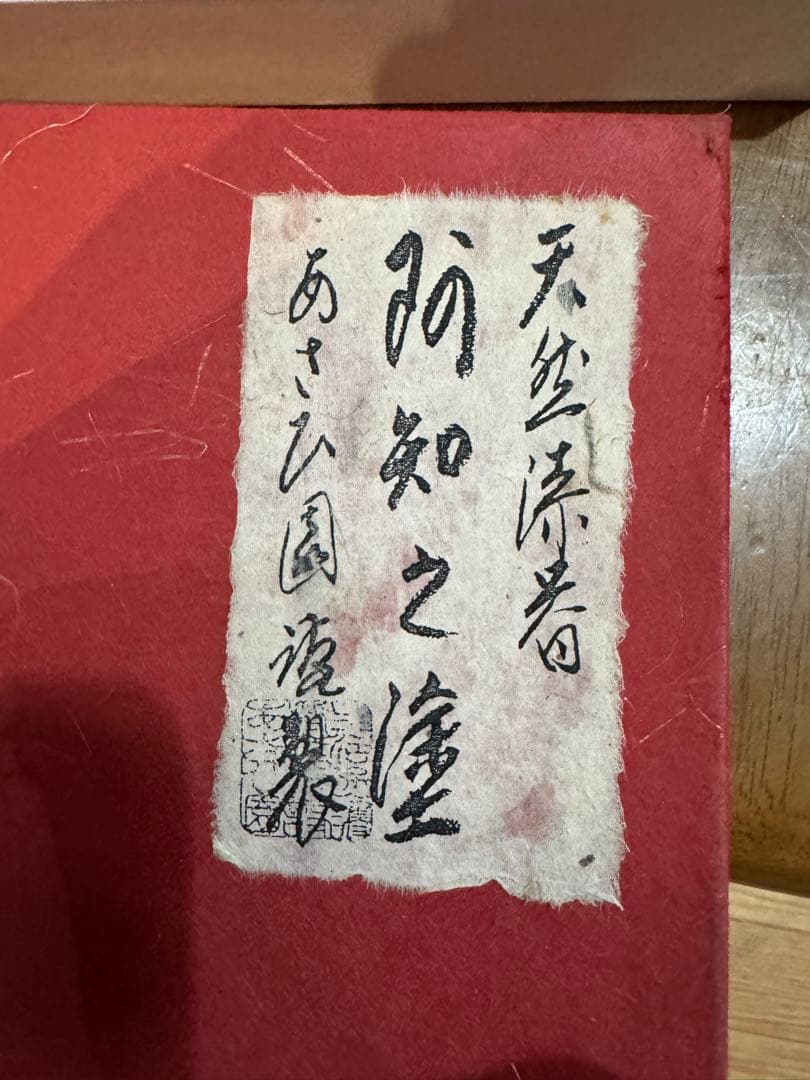 天然漆春
阿知之塗
あさひ園謹製